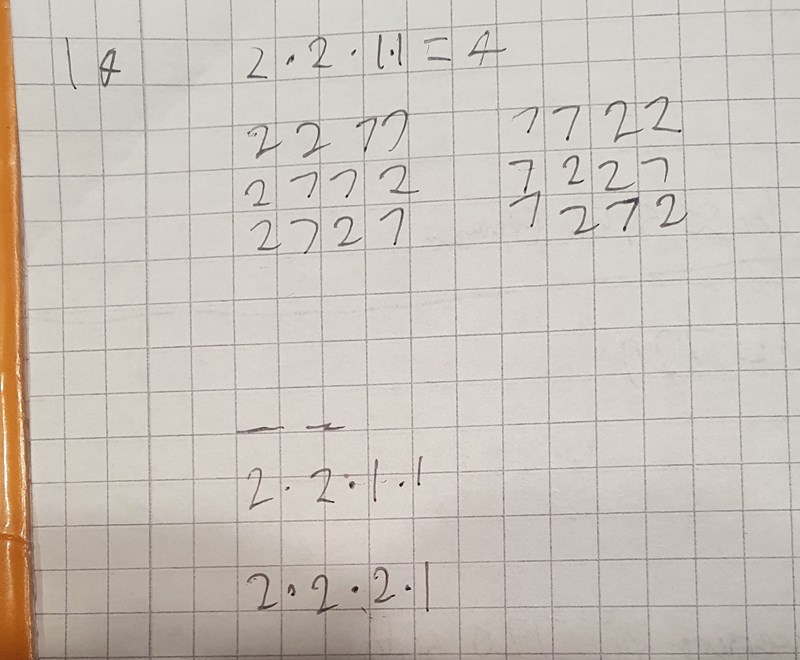 14 2 · 2 · 1 · 1 = 4
2 2 7 7 7 7 2 2
2 7 7 2 7 2 2 7
2 7 2 7 7 2 7 2
— —
2 · 2 · 1 · 1
2 · 2 · 2 · 1